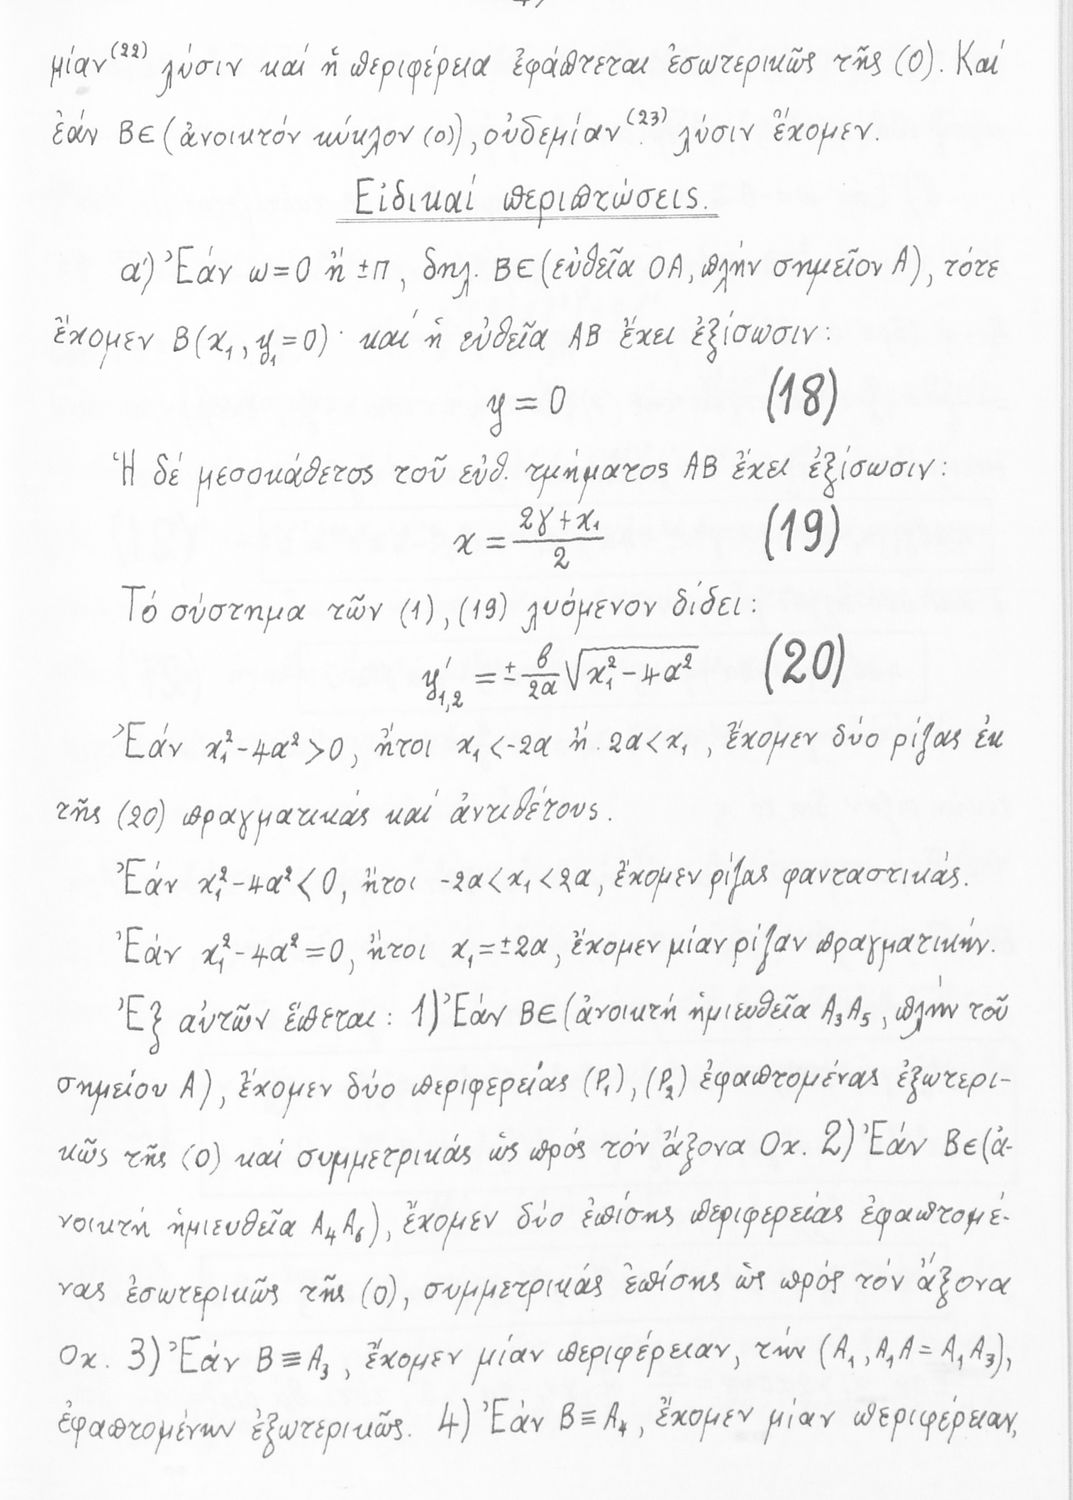 μίαν⁽²²⁾ λύσιν καί ἡ περιφέρεια ἐφάπτεται ἐσωτερικῶς τῆς (Ο). Καί
ἐάν Β∈(ἀνοικτόν κύκλον (ο)), οὐδεμίαν⁽²³⁾ λύσιν ἔχομεν.
Εἰδικαί περιπτώσεις.
α΄) Ἐάν ω=0 ἤ ±π, δηλ. Β∈(εὐθεῖα ΟΑ, πλήν σημεῖον Α), τότε
ἔχομεν Β(x₁, y₁=0)· καί ἡ εὐθεῖα ΑΒ ἔχει ἐξίσωσιν:
y = 0 (18)
Ἡ δέ μεσοκάθετος τοῦ εὐθ. τμήματος ΑΒ ἔχει ἐξίσωσιν:
x = (2γ + x₁)/2 (19)
Τό σύστημα τῶν (1), (19) λυόμενον δίδει:
y′₁,₂ = ± β/2α √(x₁² - 4α²) (20)
Ἐάν x₁² - 4α² > 0, ἤτοι x₁ < -2α ἤ 2α < x₁, ἔχομεν δύο ρίζας ἐκ
τῆς (20) πραγματικάς καί ἀντιθέτους.
Ἐάν x₁² - 4α² < 0, ἤτοι -2α < x₁ < 2α, ἔχομεν ρίζας φανταστικάς.
Ἐάν x₁² - 4α² = 0, ἤτοι x₁ = ±2α, ἔχομεν μίαν ρίζαν πραγματικήν.
Ἐξ αὐτῶν ἕπεται: 1) Ἐάν Β∈(ἀνοικτή ἡμιευθεῖα Α₃Α₅, πλήν τοῦ
σημείου Α), ἔχομεν δύο περιφερείας (Ρ₁), (Ρ₂) ἐφαπτομένας ἐξωτερι-
κῶς τῆς (Ο) καί συμμετρικάς ὡς πρός τόν ἄξονα Οx. 2) Ἐάν Β∈(ἀ-
νοικτή ἡμιευθεῖα Α₄Α₆), ἔχομεν δύο ἐπίσης περιφερείας ἐφαπτομέ-
νας ἐσωτερικῶς τῆς (Ο), συμμετρικάς ἐπίσης ὡς πρός τόν ἄξονα
Οx. 3) Ἐάν Β≡Α₃, ἔχομεν μίαν περιφέρειαν, τήν (Α₁, Α₁Α = Α₁Α₃),
ἐφαπτομένην ἐξωτερικῶς. 4) Ἐάν Β≡Α₄, ἔχομεν μίαν περιφέρειαν,